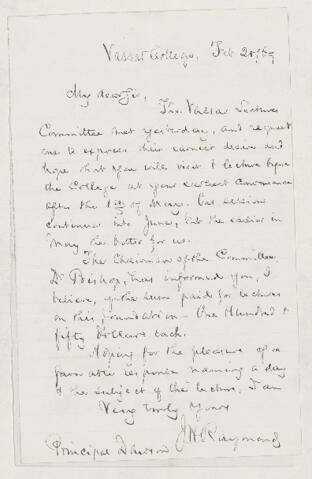 Vassar College, Feb 20/69
My dear Sir,
The Vassar Lecture
Committee met yesterday, and request
me to express their earnest desire and
hope that you will visit & lecture before
the College at your earliest convenience
after the 1st of May. Our session
continues into June, but the earlier in
May the better for us.
The Chairman of the Committee,
Dr Bishop, has informed you, I
believe, of the sum paid for lectures
on this foundation - One Hundred &
fifty Dollars each.
Hoping for the pleasure of a
favorable response naming a day
& the subject of the lecture, I am
Very truly Yours
J H Raymond
Principal Dawson